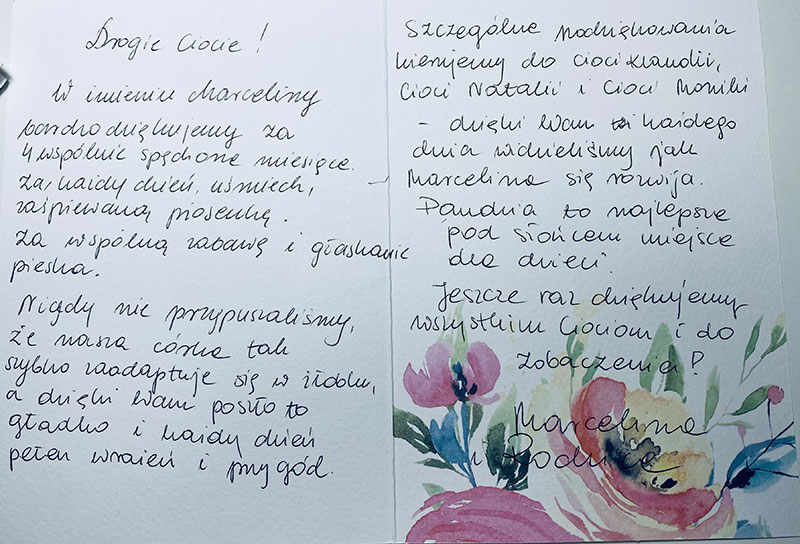 Drogie Ciocie!
W imieniu Marceliny
bardzo dziękujemy za
4 wspólnie spędzone miesiące.
Za, każdy dzień, uśmiech,
zaśpiewaną piosenkę.
Za wspólną zabawę i głaskanie
pieska.
Nigdy nie przypuszaliśmy,
że nasza córka tak
szybko zaadaptuje się w żłobku,
a dzięki Wam poszło to
gładko i każdy dzień
pełen wrażeń i przygód.
Szczególne podziękowania
kierujemy do Cioci Klaudii,
Cioci Natalii i Cioci Moniki
- dzięki Wam każdego
dnia widzieliśmy jak
Marcelina się rozwija.
Pandzia to najlepsze
pod słońcem miejsce
dla dzieci.
Jeszcze raz dziękujemy
wszystkim Ciociom i do
zobaczenia!
Marcelina
i Rodzice